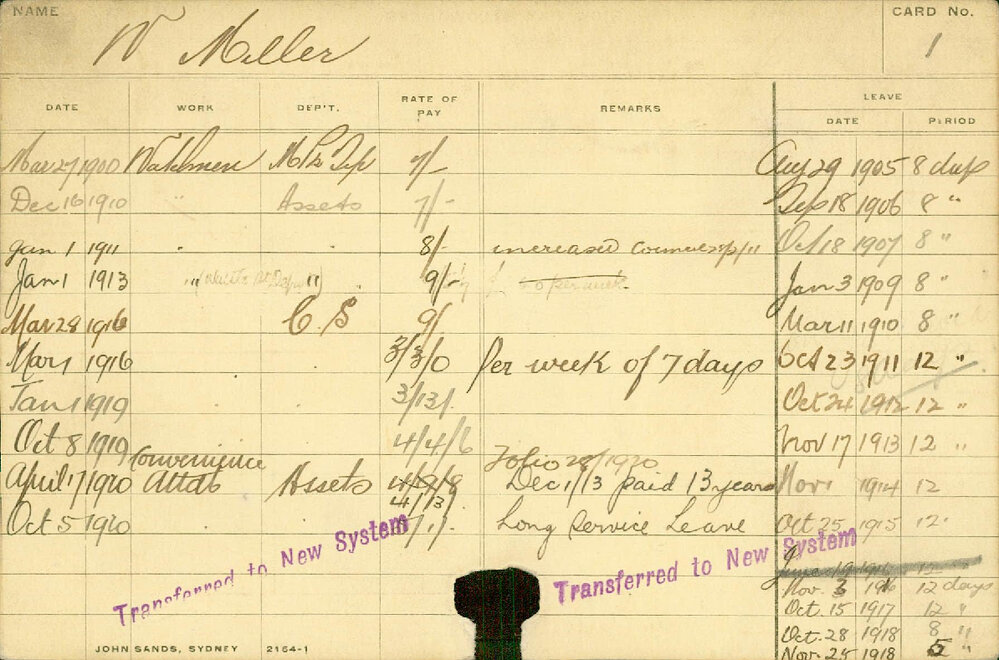 NAME W Miller CARD No. 1
DATE WORK DEP'T. RATE OF PAY REMARKS LEAVE
DATE PERIOD
Mar 27 1900 Watchmen 7/- Aug 29 1905 8 days
Dec 16 1910 " Assets 7/- Sep 18 1906 8 "
Jan 1 1911 " . 8/- increased Oct 18 1907 8 "
Jan 1 1913 " . 9/- Jan 3 1909 8 "
Mar 28 1916 C.S 9/ Mar 11 1910 8 "
Mar 1 1916 3/3/0 Per week of 7 days Oct 23 1911 12 "
Jan 1 1919 3/13/. Oct 24 1912 12 "
Oct 8 1919 4/4/6 Nov 17 1913 12 "
Convenience Folio 28/1920
April 17 1920 Attdt Assets Dec 1/13 paid 13 years Nov 1 1914 12
4/13/
Oct 5 1920 . . Long Service Leave Oct 25 1915 12 "
Transferred to New System Transferred to New System
Nov. 3 1916 12 days
Oct. 15 1917 12 "
Oct. 28 1918 8 "
Nov. 25 1918 5 "
JOHN SANDS, SYDNEY 2164-1